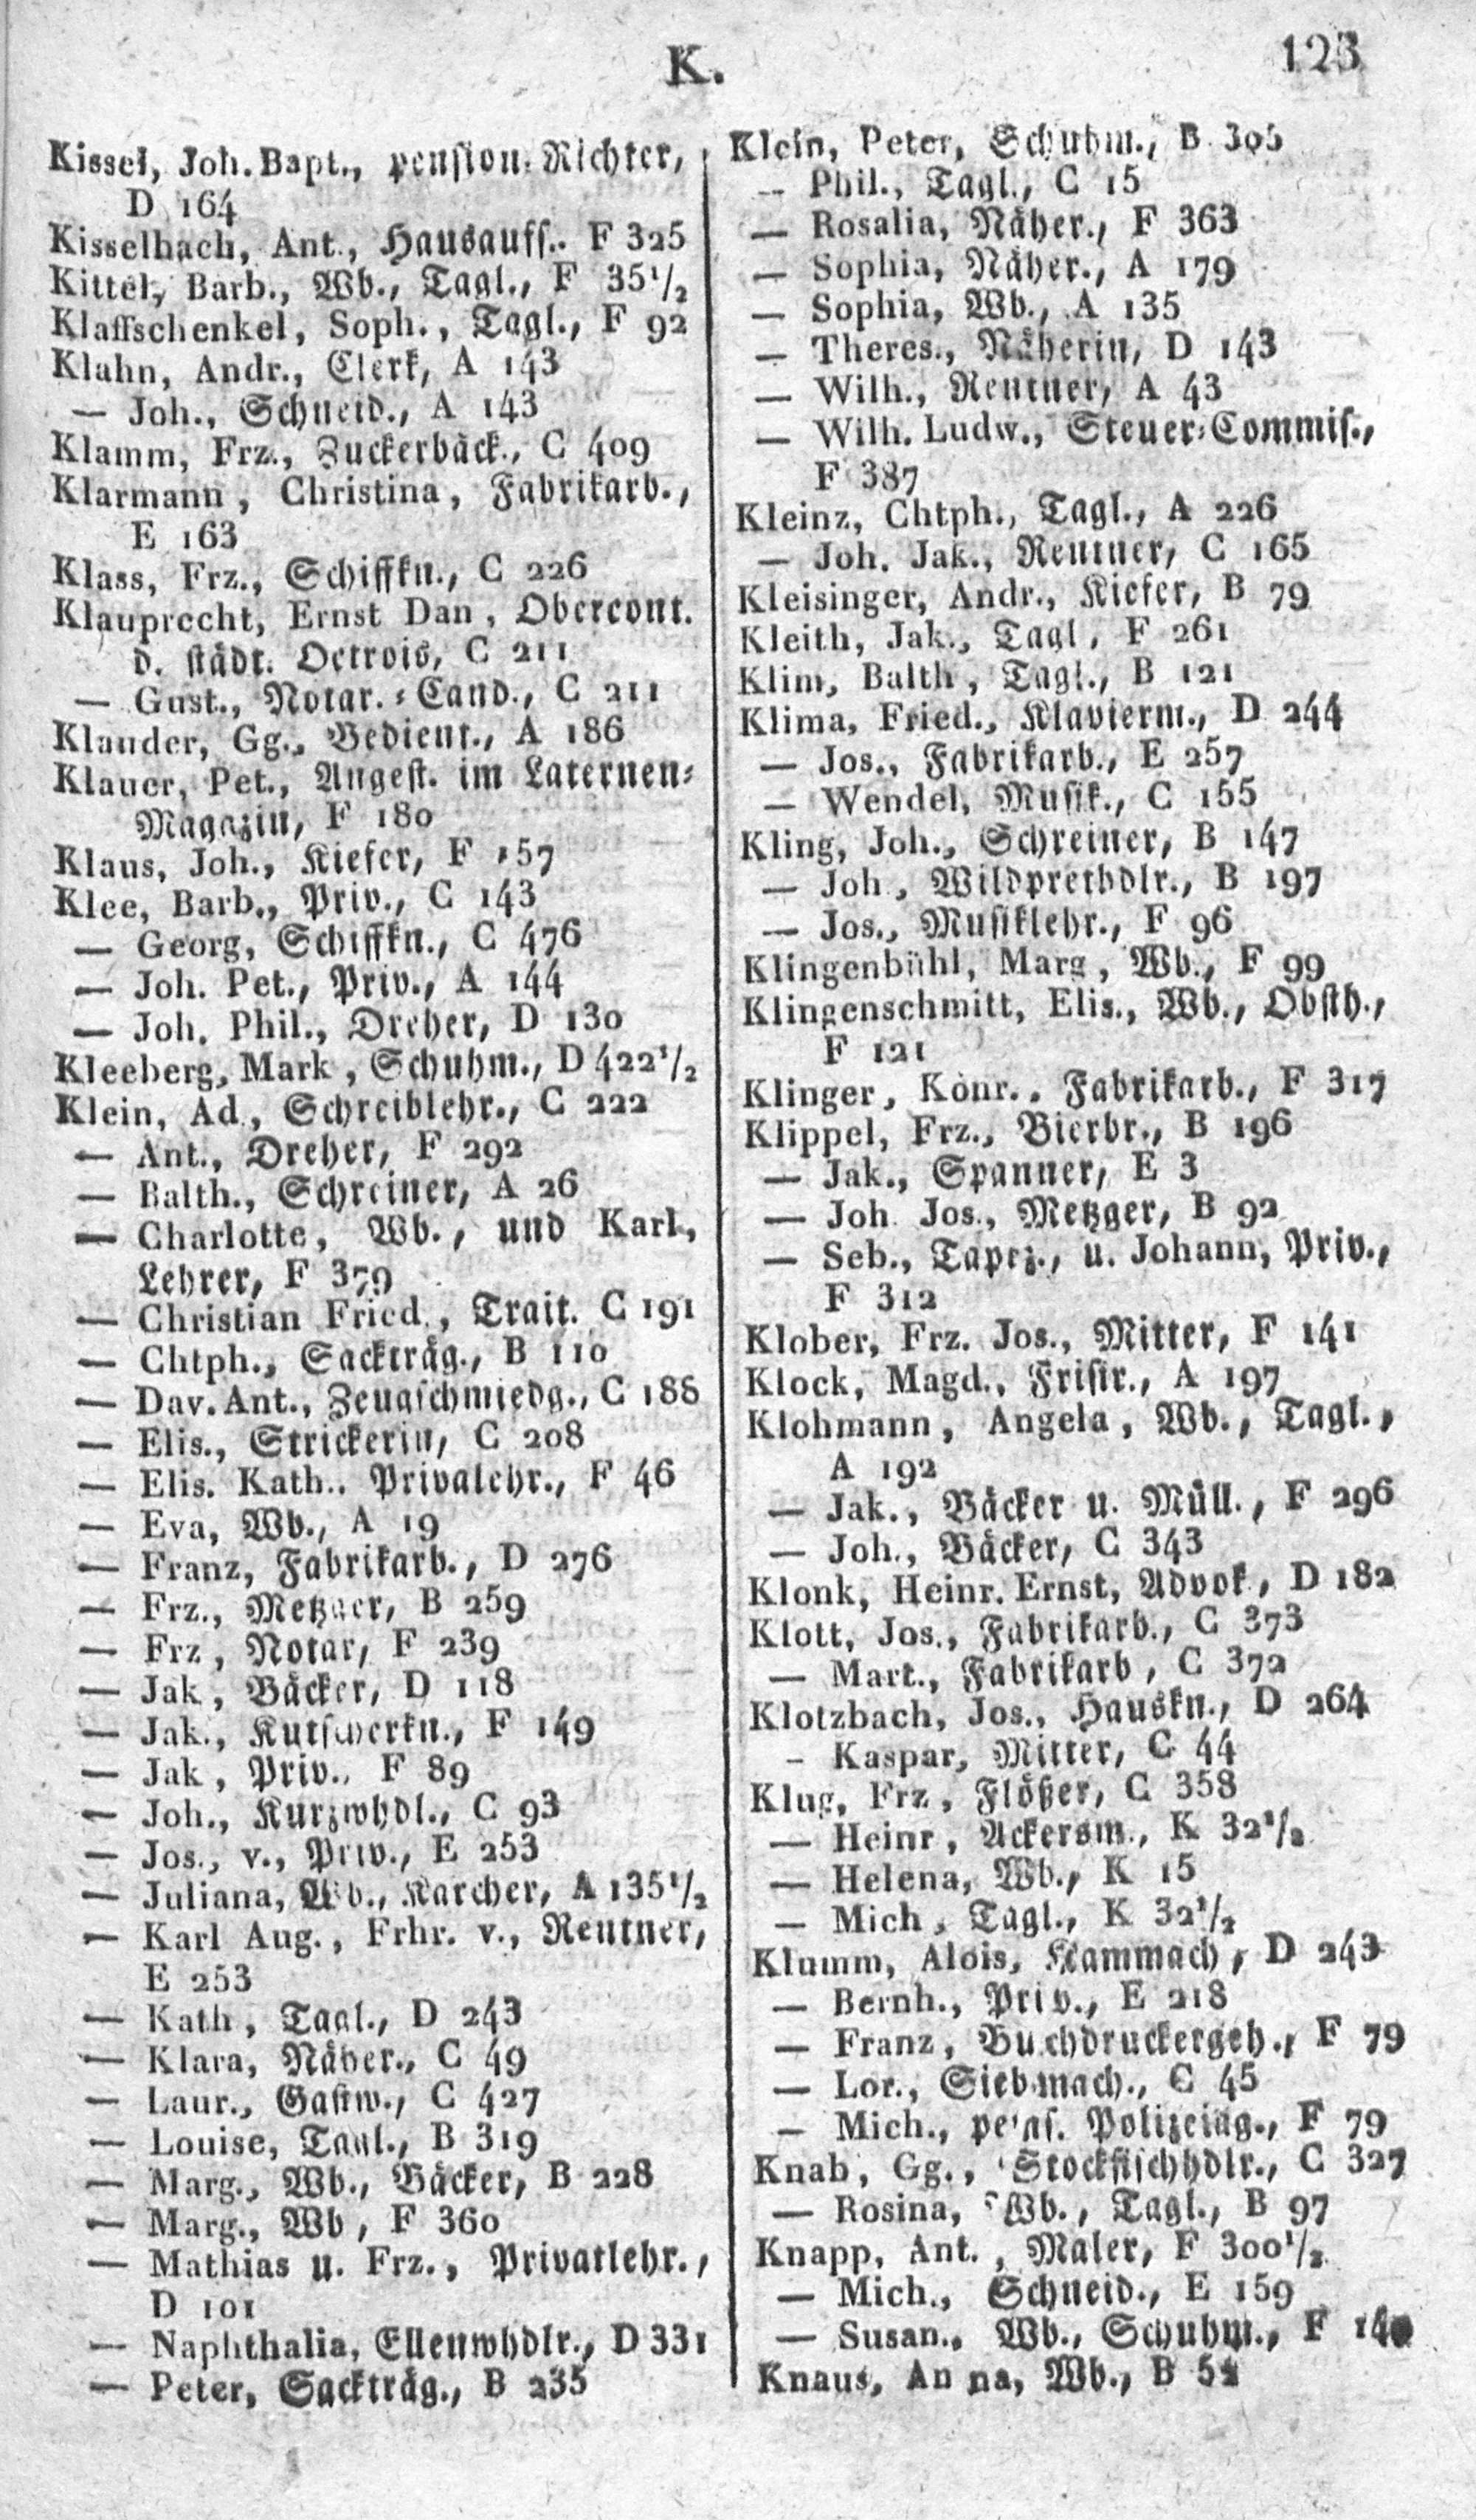 K.
123
Kissel, Joh. Bapt., pension. Richter,
D 164
Kisselbach, Ant., Hausauff., F 325
Kittel, Barb., Wb., Tagl., F 35 1/2
Klaffschenkel, Soph., Tagl., F 92
Klahn, Andr., Clerk, A 143
— Joh., Schneid., A 143
Klamm, Frz., Zuckerbäck., C 409
Klarmann, Christina, Fabrikarb.,
E 163
Klass, Frz., Schiffkn., C 226
Klauprecht, Ernst Dan, Obercont.
d. städt. Octrois, C 211
— Gust., Notar.-Cand., C 211
Klauder, Gg., Bedient., A 186
Klauer, Pet., Angest. im Laternen-
Magazin, F 180
Klaus, Joh., Kiefer, F 157
Klee, Barb., Priv., C 143
— Georg, Schiffkn., C 476
— Joh. Pet., Priv., A 144
— Joh. Phil., Dreher, D 130
Kleeberg, Mark, Schuhm., D 422 1/2
Klein, Ad., Schreiblehr., C 222
— Ant., Dreher, F 292
— Balth., Schreiner, A 26
— Charlotte, Wb., und Karl,
Lehrer, F 379
— Christian Fried., Trait. C 191
— Chtph., Sackträg., B 110
— Dav. Ant., Zeugschmiedg., C 188
— Elis., Strickerin, C 208
— Elis. Kath., Privalehr., F 46
— Eva, Wb., A 19
— Franz, Fabrikarb., D 276
— Frz., Metzger, B 259
— Frz, Notar, F 239
— Jak, Bäcker, D 118
— Jak., Kutscherkn., F 149
— Jak, Priv., F 89
— Joh., Kurzwhdl., C 93
— Jos., v., Priv., E 253
— Juliana, Wb., Karcher, A 135 1/2
— Karl Aug., Frhr. v., Rentner,
E 253
— Kath, Tagl., D 243
— Klara, Näher., C 49
— Laur., Gastw., C 427
— Louise, Tagl., B 319
— Marg., Wb., Bäcker, B 228
— Marg., Wb, F 360
— Mathias u. Frz., Privatlehr.,
D 101
— Naphthalia, Ellenwhdlr., D 331
— Peter, Sackträg., B 235
Klein, Peter, Schuhm., B
— Phil., Tagl., C 15
— Rosalia, Näher., F 363
— Sophia, Näher., A 179
— Sophia, Wb., A 135
— Theres., Näherin, D 143
— Wilh., Rentner, A 43
— Wilh. Ludw., Steuer-Commis.,
F 387
Kleinz, Chtph., Tagl., A 226
— Joh. Jak., Rentner, C 165
Kleisinger, Andr., Kiefer, B 79
Kleith, Jak., Tagl, F 261
Klim, Balth, Tagl., B 121
Klima, Fried., Klavierm., D 244
— Jos., Fabrikarb., E 257
— Wendel, Musik., C 155
Kling, Joh., Schreiner, B 147
— Joh, Wildprethdlr., B 197
— Jos., Musiklehr., F 96
Klingenbühl, Marg, Wb., F 99
Klingenschmitt, Elis., Wb., Obsth.,
F 121
Klinger, Konr., Fabrikarb., F 317
Klippel, Frz., Bierbr., B 196
— Jak., Spanner, E 3
— Joh. Jos., Metzger, B 92
— Seb., Tapez., u. Johann, Priv.,
F 312
Klober, Frz. Jos., Mitter, F 141
Klock, Magd., Frisir., A 197
Klohmann, Angela, Wb., Tagl.,
A 192
— Jak., Bäcker u. Müll., F 296
— Joh., Bäcker, C 343
Klonk, Heinr. Ernst, Advok, D 182
Klott, Jos., Fabrikarb., C 373
— Mart., Fabrikarb, C 372
Klotzbach, Jos., Hauskn., D 264
— Kaspar, Mitter, C 44
Klug, Frz, Flößer, C 358
— Heinr, Ackersm., K 32 1/2
— Helena, Wb., K 15
— Mich, Tagl., K 32 1/2
Klumm, Alois, Kammach, D 243
— Bernh., Priv., E 218
— Franz, Buchdruckergeh., F 79
— Lor., Siebmach., C 45
— Mich., pens. Polizeiag., F 79
Knab, Gg., Stockfischhdlr., C 327
— Rosina, Wb., Tagl., B 97
Knapp, Ant., Maler, F 300 1/2
— Mich., Schneid., E 159
— Susan., Wb., Schuhm., F
Knaus, Anna, Wb., B